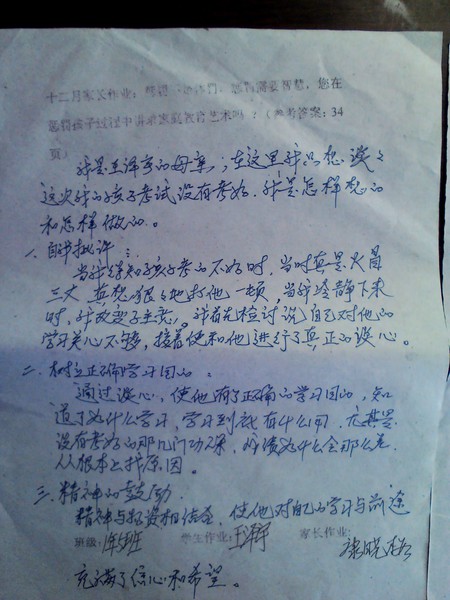 十二月家长作业：惩罚 您需要智慧，您在
惩罚孩子过程中讲求家庭教育艺术吗？（参考答案：34
页）
我是王泽宇的母亲，在这里我只想谈谈
这次我的孩子考试没有考好，我是怎样想的
和怎样做的。
一、自我批评：
当我得知孩子考的不好时，当时真是火冒
三丈，真想狠狠地打他一顿，当我冷静下来
时，我改变了主意。我首先检讨说自己对他的
学习关心不够，接着便和他进行了真正的谈心。
二、树立正确学习目的：
通过谈心，使他有了正确的学习目的，知
道了为什么学习，学习到底有什么用，尤其是
没有考好的那几门功课，成绩为什么会那么差，
从根本上找原因。
三、精神的鼓励
精神与物质相结合，使他对自己的学习与前途
班级： 学生作业： 家长作业：
充满了信心和希望。